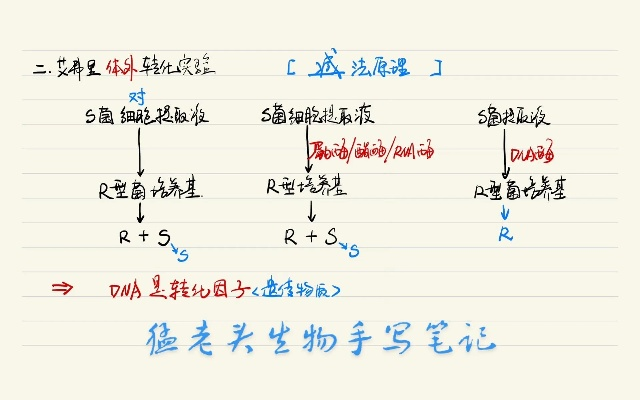 二.艾弗里体外转化实验 [减法原理]
对
S菌细胞提取液 S菌细胞提取液 S菌提取液
蛋白酶/酯酶/RNA酶 DNA酶
R型菌培养基 R型培养基 R型菌培养基
R + S R + S R
S S
⇒ DNA是转化因子<遗传物质>
猛老头生物手写笔记